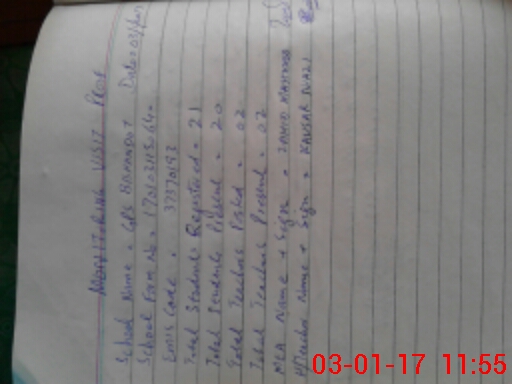 MONITORING VISIT PROF
School Name = GPS BARANDOT Date = 03/Jan
School Form No = 17010311506400
Emis Code = 37370193
Total Students Registered = 21
Total Students Present = 20
Total Teachers Posted = 02
Total Teachers Present = 02
MEA Name + Sign = ZAHID MAHMOOD
H/Teacher Name + Sign = KAUSAR
03-01-17 11:55